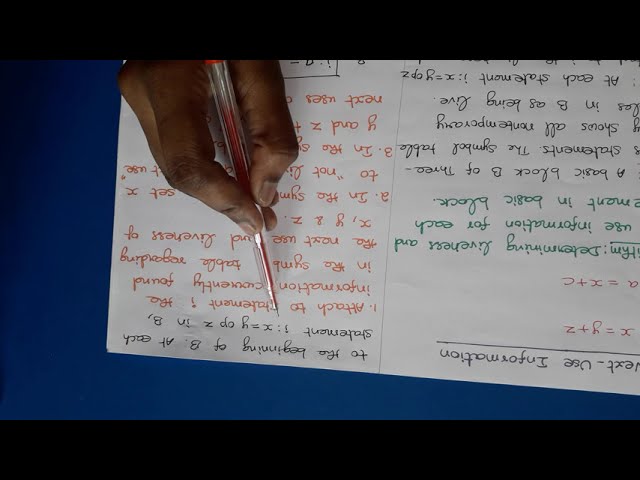 Next-Use Information
x = y+z
a = x+c
ithm: Determining liveness and
use information for each
ement in basic block.
: A basic block B of Three-
s statements. The symbol table
y shows all nontemporary
les in B as being live.
: At each statement i: x=y op z
to the beginning of B. At each
statement i: x=y op z in B,
1. Attach to statement i the
information currently found
in the symb table regarding
the next use and liveness of
x, y & z.
2. In the sym set x
to "not li use"
3. In the sy
y and z
next uses